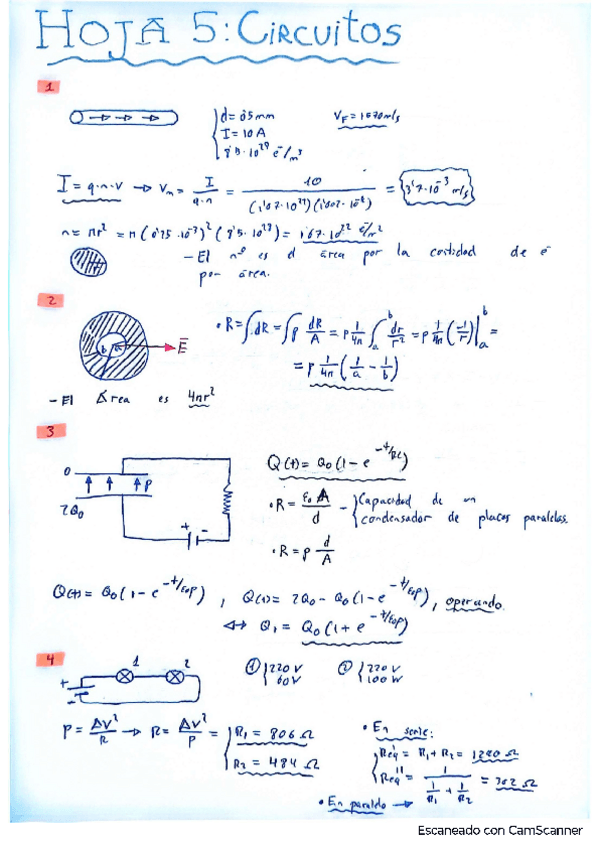 HOJA 5: CIRCUITOS
1
d = 0'5 mm
I = 10 A
8'5·10²⁸ e⁻/m³
V_F = 1570 m/s
I = q·n·v → V_m = I/(q·n) = 10/((1'67·10²²)(1'602·10⁻¹⁹)) = 3'7·10⁻³ m/s
n = πr² = π(0'25·10⁻³)²(8'5·10²⁸) = 1'67·10²² e⁻/m²
- El nº es el área por la cantidad de e⁻
por área.
2
b a E
• R = ∫dR = ∫ρ dR/A = ρ 1/4π ∫ₐᵇ dr/r² = ρ 1/4π (-1/r)|ₐᵇ =
= ρ 1/4π (1/a - 1/b)
- El Área es 4πr²
3
0
ρ
2Q₀
+ -
Q(t) = Q₀(1 - e^(-t/RC))
• R = ε₀A/d - Capacidad de un
condensador de placas paralelas.
• R = ρ d/A
Q(t) = Q₀(1 - e^(-t/ε₀ρ)), Q(t) = 2Q₀ - Q₀(1 - e^(-t/ε₀ρ)), operando.
⇔ Q₁ = Q₀(1 + e^(-t/ε₀ρ))
4
+ - 1 2
① 220 V
60 V
② 220 V
100 W
P = ΔV²/R → R = ΔV²/P = R₁ = 806 Ω
R₂ = 484 Ω
• En serie:
Req' = R₁ + R₂ = 1290 Ω
Req'' = 1/(1/R₁ + 1/R₂) = 302 Ω
• En paralelo →
Escaneado con CamScanner